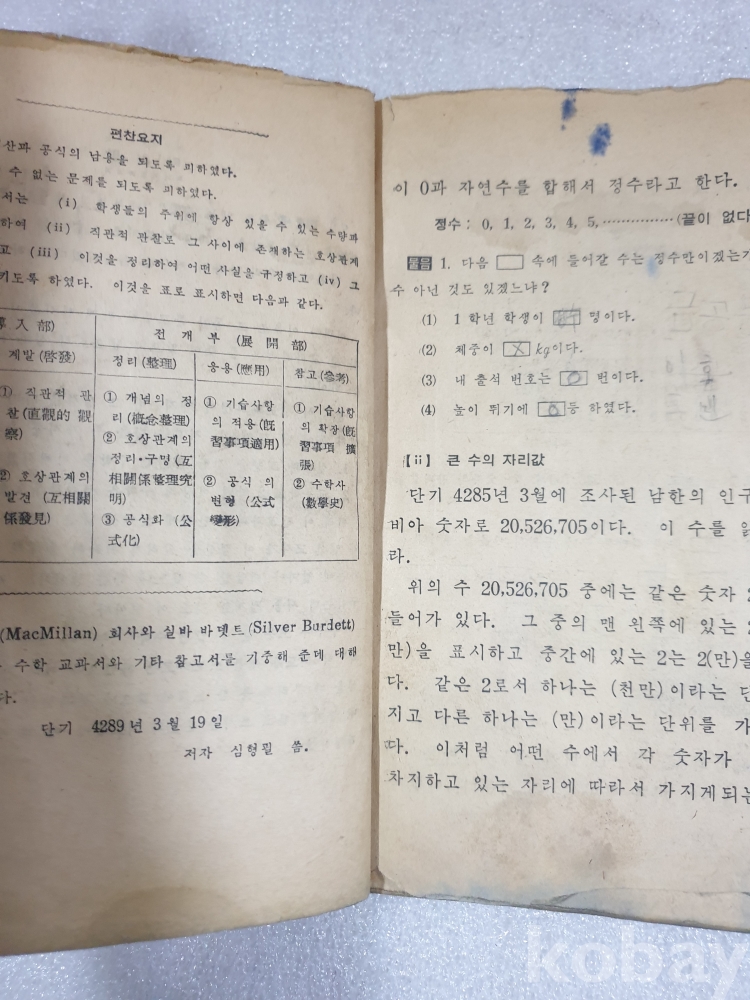 편찬요지
산과 공식의 남용을 되도록 피하였다.
수 없는 문제를 되도록 피하였다.
서는 (i) 학생들의 주위에 항상 있을 수 있는 수량과
하여 (ii) 직관적 관찰로 그 사이에 존재하는 호상관계
고 (iii) 이것을 정리하여 어떤 사실을 규정하고 (iv) 그
키도록 하였다. 이것을 표로 표시하면 다음과 같다.
導入部)
전 개 부 (展開部)
계발 (啓發)
정리 (整理)
응용 (應用)
참고 (參考)
① 직관적 관
찰 (直觀的 觀
察)
② 호상관계의
발견 (互相關
係發見)
① 개념의 정
리 (槪念整理)
② 호상관계의
정리·구명 (互
相關係整理究
明)
③ 공식화 (公
式化)
① 기습사항
의 적용 (旣
習事項適用)
② 공식의
변형 (公式
變形)
① 기습사항
의 확장 (旣
習事項 擴
張)
② 수학사
(數學史)
(MacMillan) 회사와 실바 바뎃트 (Silver Burdett)
수학 교과서와 기타 참고서를 기증해 준데 대해
다.
단기 4289년 3월 19일
저자 심형필 씀.
이 0과 자연수를 합해서 정수라고 한다.
정수 : 0, 1, 2, 3, 4, 5, …………… (끝이 없다
물음 1. 다음 □ 속에 들어갈 수는 정수만이겠는가
수 아닌 것도 있겠느냐?
(1) 1학년 학생이 □ 명이다.
(2) 체중이 X kg이다.
(3) 내 출석 번호는 0 번이다.
(4) 높이 뛰기에 0 등 하였다.
【ii】 큰 수의 자리값
단기 4285년 3월에 조사된 남한의 인구
비아 숫자로 20,526,705이다. 이 수를 읽
라.
위의 수 20,526,705 중에는 같은 숫자 2
들어가 있다. 그 중의 맨 왼쪽에 있는 2
만)을 표시하고 중간에 있는 2는 2(만)을
다. 같은 2로서 하나는 (천만)이라는 단
지고 다른 하나는 (만)이라는 단위를 가
다. 이처럼 어떤 수에서 각 숫자가
차지하고 있는 자리에 따라서 가지게되는
kobay